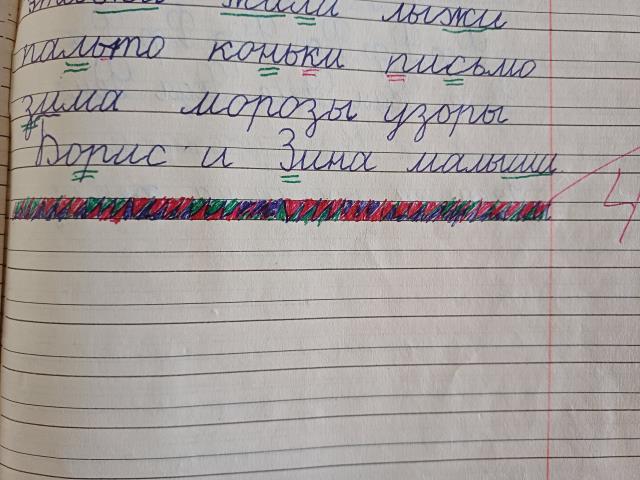 жили лыжи
пальто коньки письмо
зима морозы узоры
Борис и Зина малыши
4